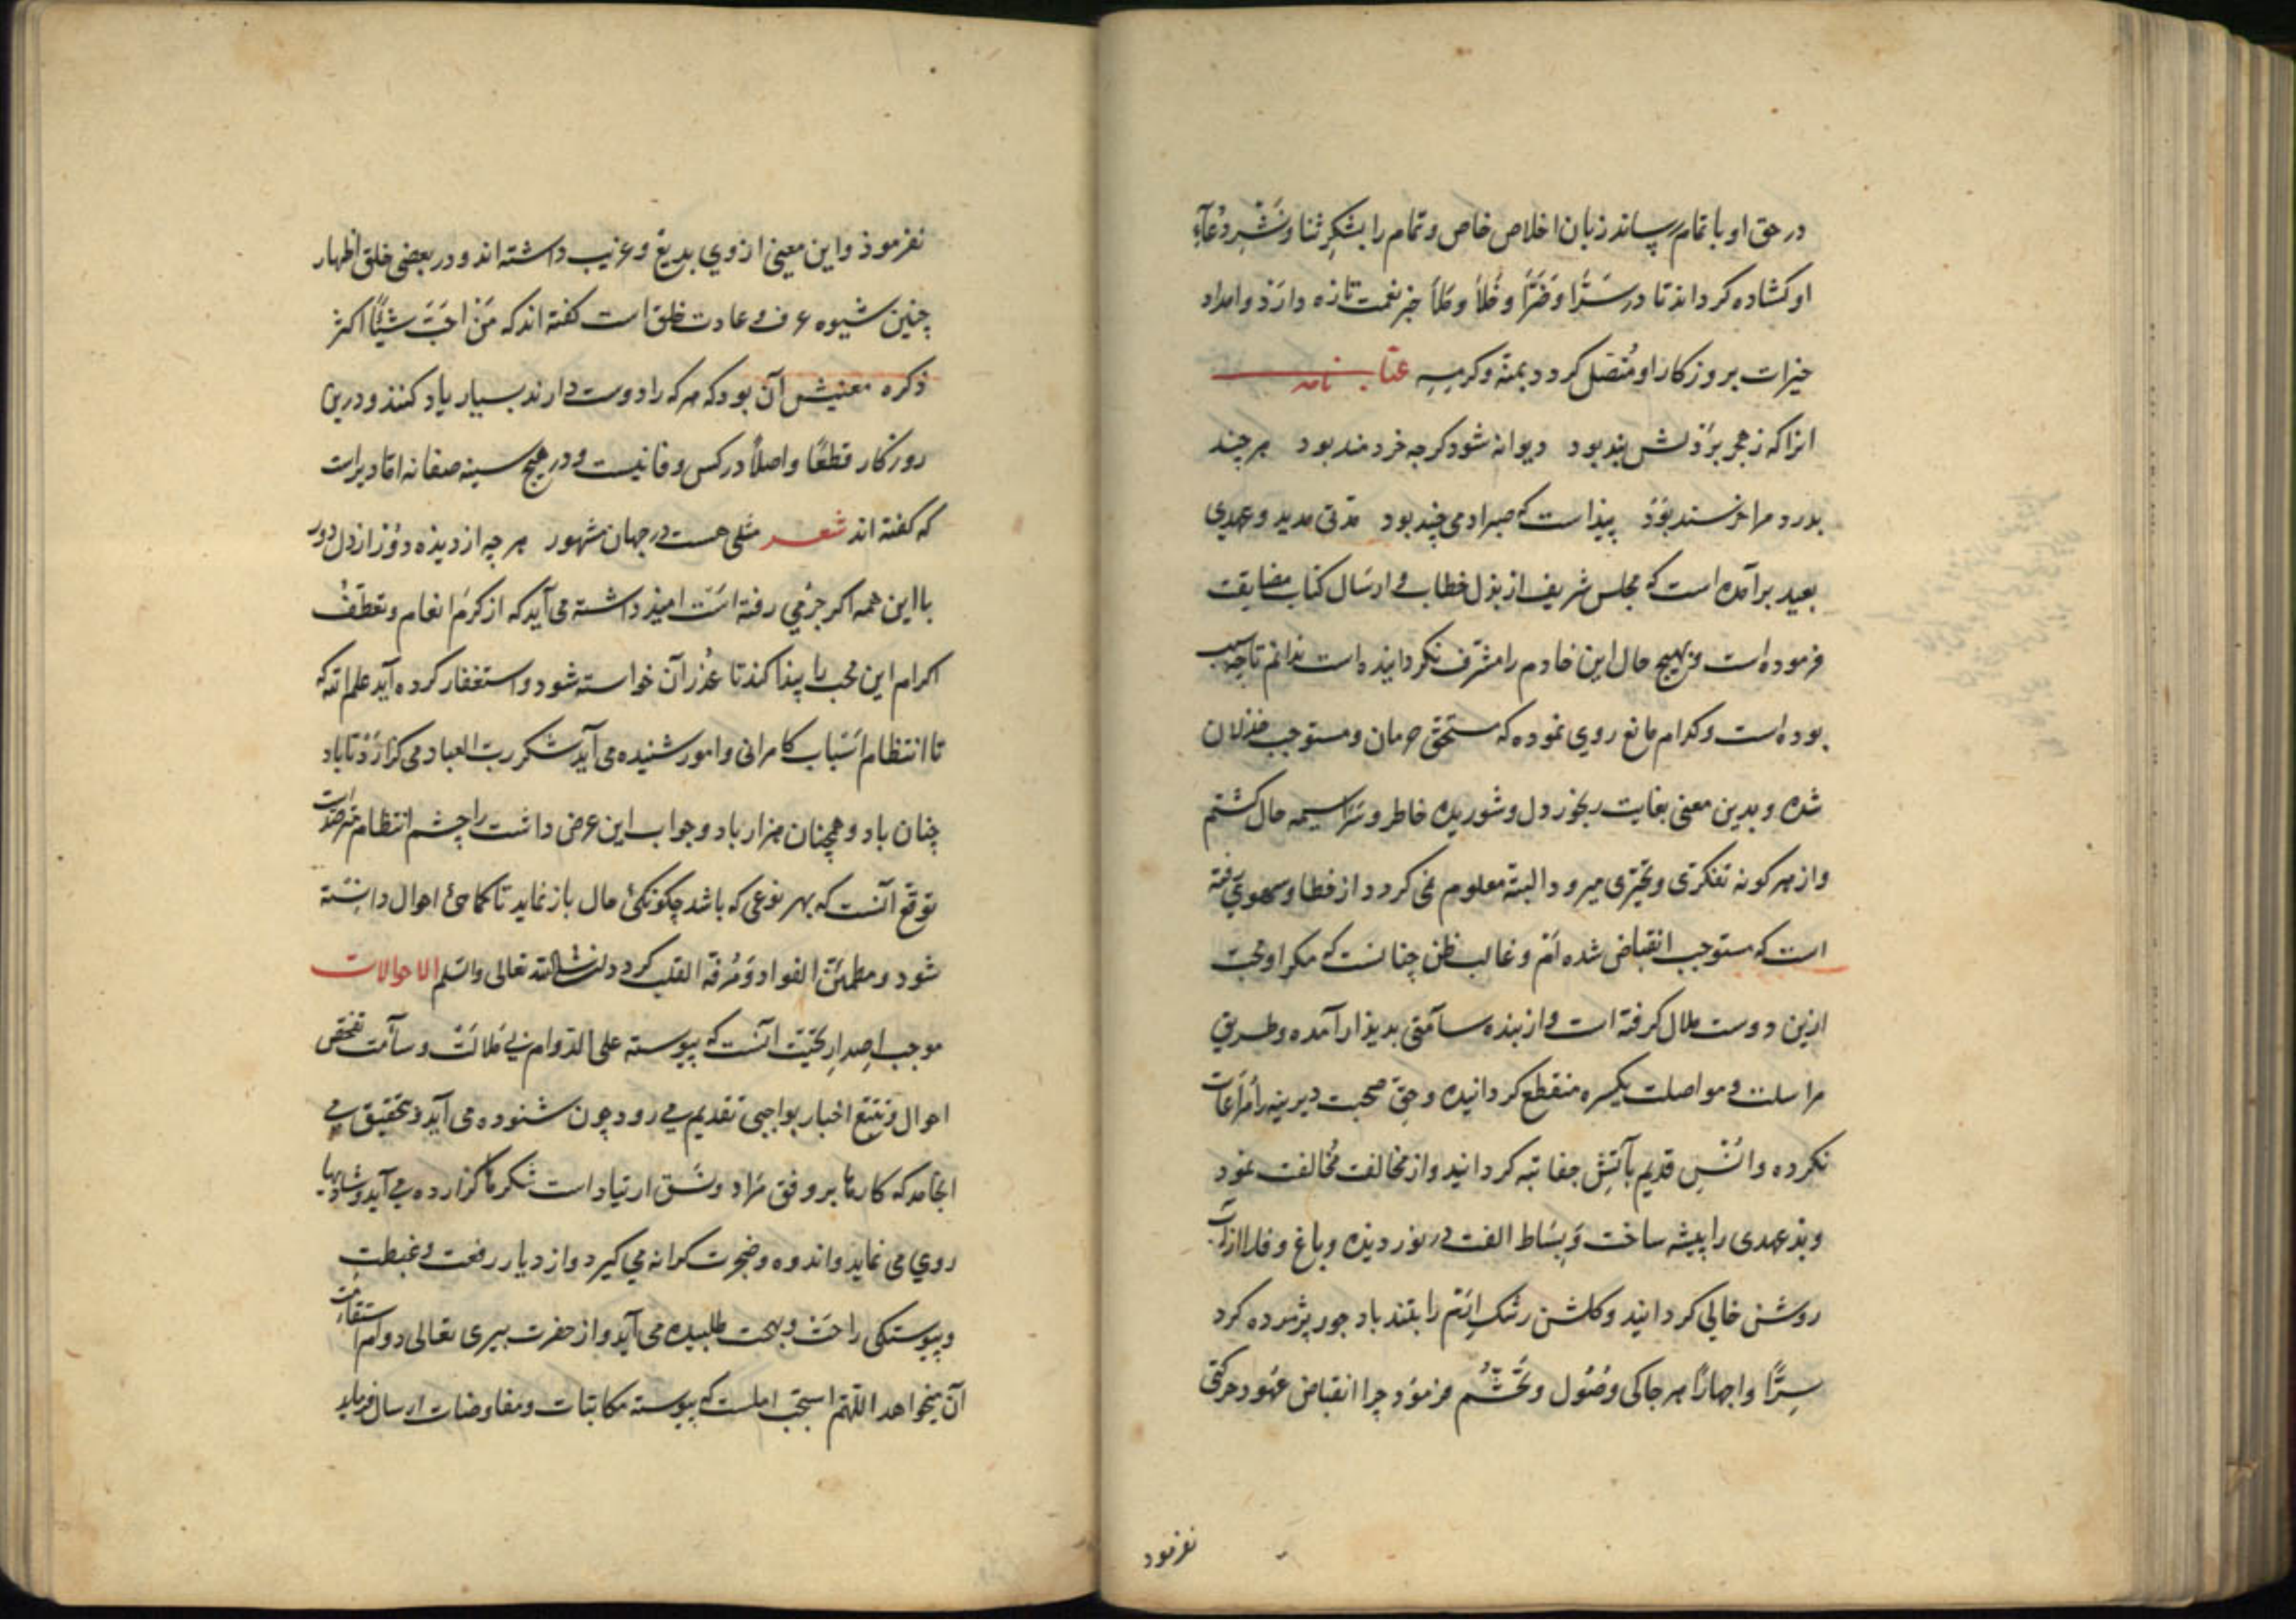 در حق او باتمام رساند زبان اخلاص خاص و تمام را بشکر ثنا و نشر دعاء
او کشاده کرداند تا در سرّا و ضرّا و خلأ و ملأ جز نعمت تازه دارد و امداد
خیرات بروزکار او متصل کردد بمنه و کرمه عتاب نامه
انرا که ز هجر بر دلش بند بود دیوانه شود کرچه خردمند بود هر چند
بدرد مرا خرسند بود پیذاست که صبر ادمی چند بود مدتی مدید و عهدی
بعید برآمده است که مجلس شریف از بذل خطاب و ارسال کتاب مضایقت
فرموده است و بهیچ حال این خادم را مشرف نکردانیده است ندانم تا چه سبب
بوده است و کدام مانع روی نموده که مستحق حرمان و مستوجب خذلان
شده و بدین معنی بغایت رنجور دل و شوریده خاطر و سراسیمه حال کشتم
واز هر کونه تفکری و تحیری میرود البته معلوم نمی کردد از خطا و سهوی رفته
است که مستوجب انقباض شده ام و غالب ظن چنانست که مکر او محبت
ازین دوست ملال کرفته است و از بنده سآمتی بدیذار آمده و طریق
مراسلت و مواصلت یکسره منقطع کردانیده و حق صحبت دیرینه را مراعات
نکرده و انس قدیم بآتش جفا تبه کردانید و از مخالفت مخالفت نمود
وبذ عهدی را پیشه ساخت و بساط الفت در نوردیده و باغ وفا را از آب
روشن خالی کردانید و کلشن رشک ارم را بتند باد جور پژمرده کرد
سرًّا و اجهارًا هر جا کی وصول و تجشم فرمود چرا انقباض عهود حرکتی
نفرمود
نفرموذ و این معنی از وی بدیع و غریب داشته اند و در بعضی خلق اظهار
چنین شیوه عرف و عادت خلق است کفته اند که من احبّ شیئًا اکثر
ذکره معنیش آن بود که هر که را دوست دارند بسیار یاد کنند و درین
روزکار قطعًا و اصلًا در کس وفا نیست و در هیچ سینه صفا نه اما دیراست
که کفته اند شعر مثلی هست در جهان مشهور هر چه از دیذه دور از دل دور
با این همه اکر جرمی رفته است امیذ داشته می آید که از کرم انعام و تعطف
اکرام این محب را پیذا کند تا عذر آن خواسته شود و استغفار کرده آید علم الله که
تا انتظام اسباب کامرانی و امور شنیده می آید شکر رب العباد می کزارذ تا باد
چنان باد و همچنان هزار باد و جواب این عرض داشت را چشم انتظام مترصد است
توقع آنست که بهر نوعی که باشد چکونکئ حال باز نماید تا کماحئ احوال دانسته
شود و مطمئن الفواد و مرفه القلب کردد ان شاءالله تعالی والسلم الاحوالات
موجب اصدار تحیت آنست که پیوسته علی الدوام بی ملالت و سآمت تفحص
احوال و تتبع اخبار بواجبی تقدیم می رود چون شنوده می آید و بتحقیق می
انجامد که کارها بر وفق مراد و نسق ارتیاد است شکرها کزارده می آید و شادیها
روی می نماید و اندوه و ضجرت کرانه می کیرد و ازدیار رفعت و غبطت
و پیوستکی راحت و بهجت طلبیده می آید و از حضرت بیری تعالی دوام استقامت
آن میخواهد اللهم استجب املست که پیوسته مکاتبات و مفاوضات ارسال فرماید